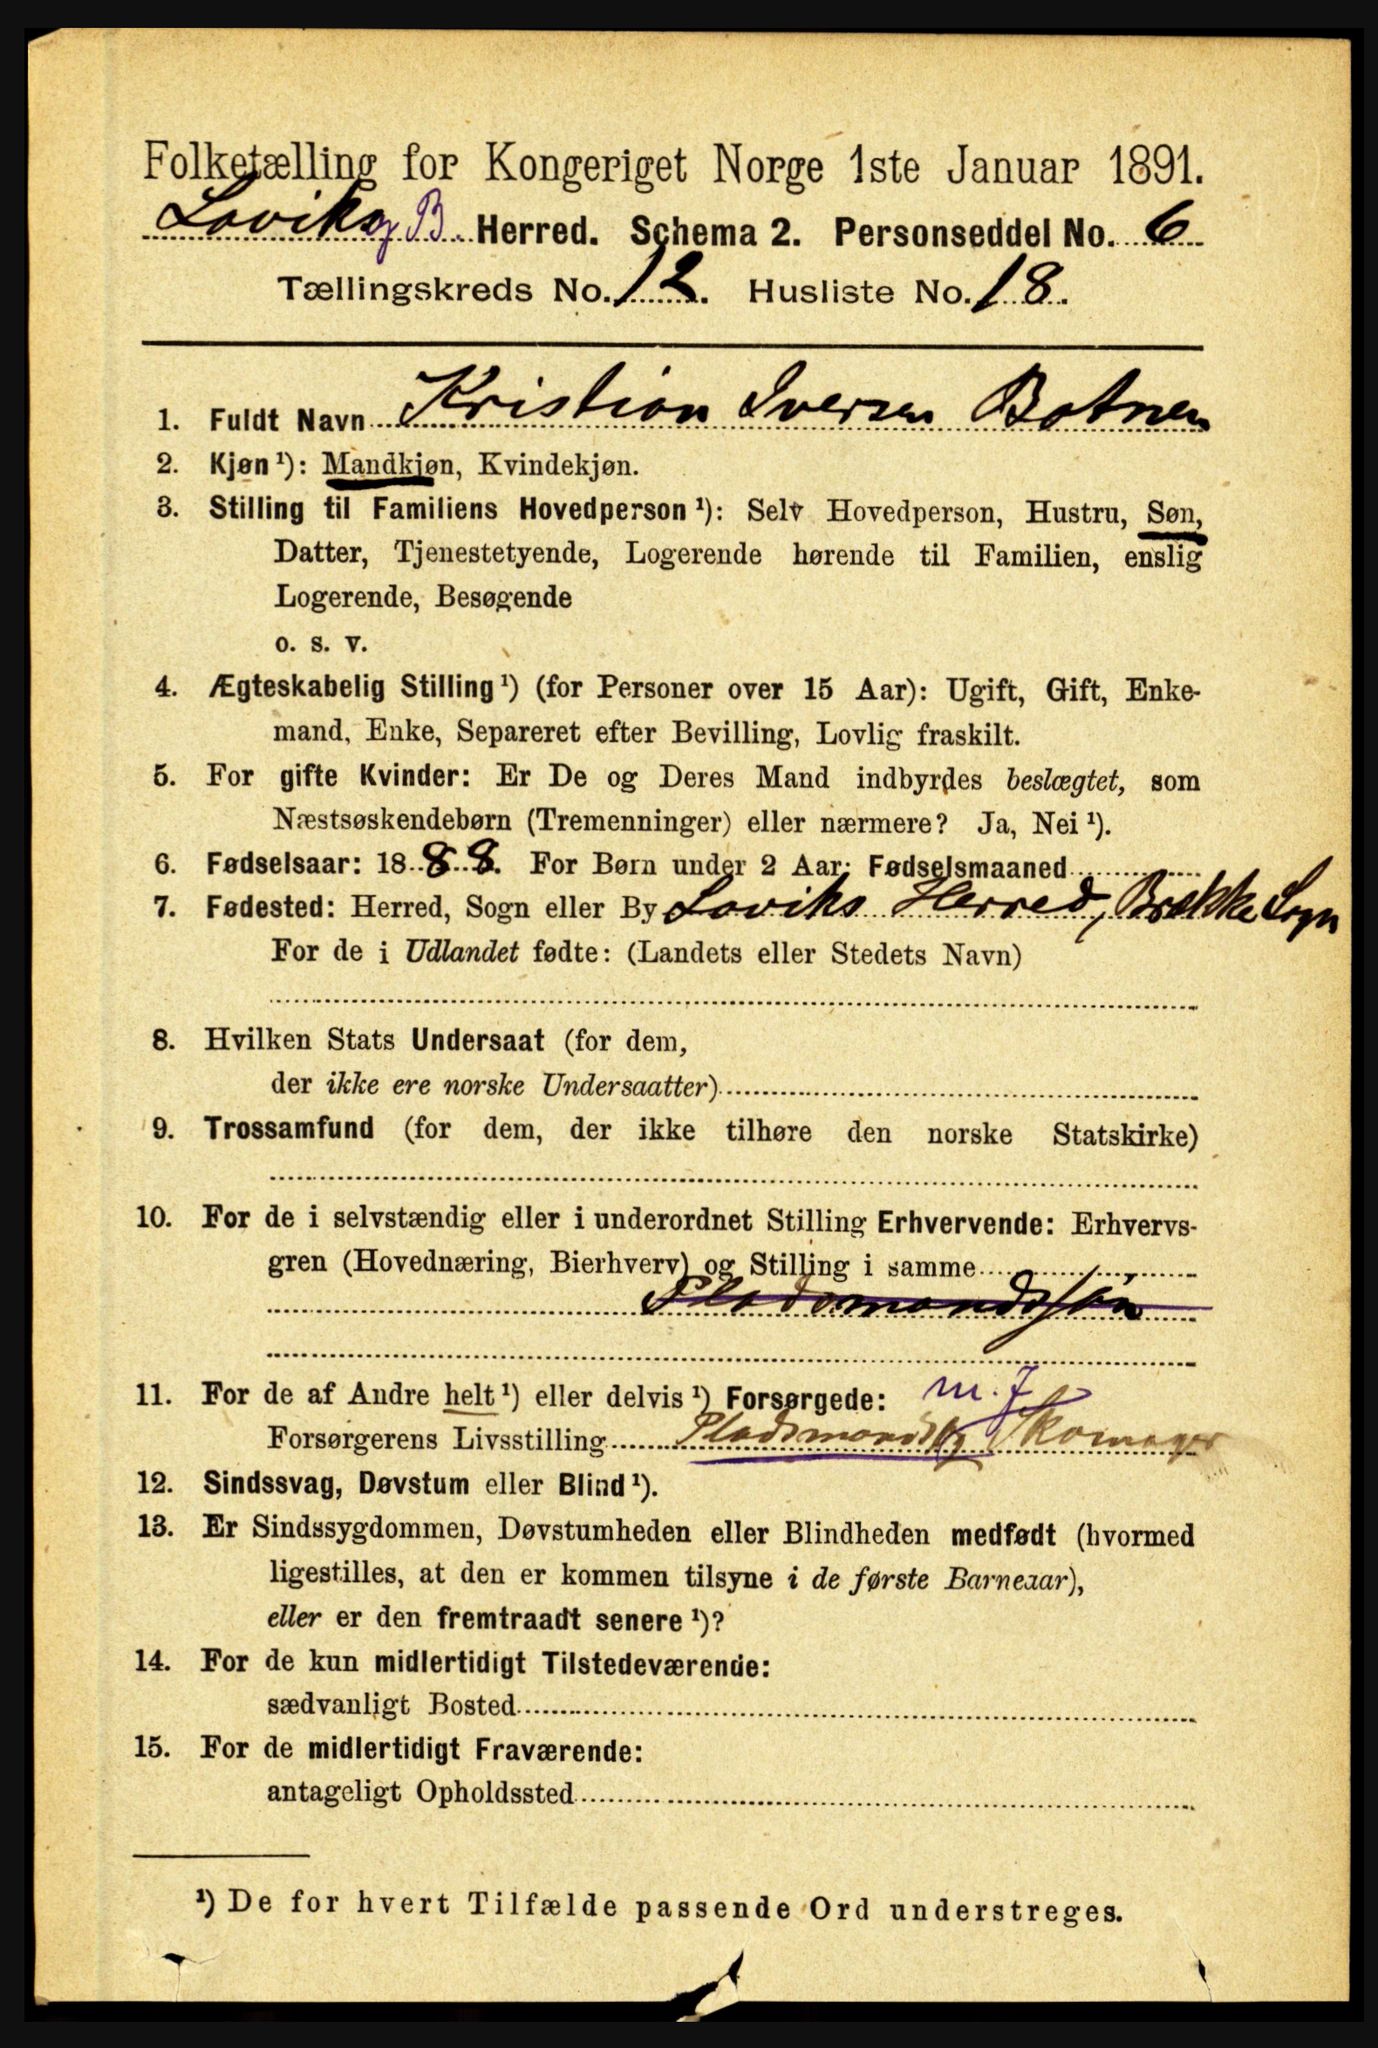 Folketælling for Kongeriget Norge 1ste Januar 1891.
Laviks og B. Herred. Schema 2. Personseddel No. 6
Tællingskreds No. 12. Husliste No. 18.
1. Fuldt Navn Kristian Iversen Botnen
2. Kjøn ¹): Mandkjøn, Kvindekjøn.
3. Stilling til Familiens Hovedperson ¹): Selv Hovedperson, Hustru, Søn,
Datter, Tjenestetyende, Logerende hørende til Familien, enslig
Logerende, Besøgende
o. s. v.
4. Ægteskabelig Stilling ¹) (for Personer over 15 Aar): Ugift, Gift, Enke-
mand, Enke, Separeret efter Bevilling, Lovlig fraskilt.
5. For gifte Kvinder: Er De og Deres Mand indbyrdes beslægtet, som
Næstsøskendebørn (Tremenninger) eller nærmere? Ja, Nei ¹).
6. Fødselsaar: 1888. For Børn under 2 Aar: Fødselsmaaned
7. Fødested: Herred, Sogn eller By Laviks Herred, Brække Sogn
For de i Udlandet fødte: (Landets eller Stedets Navn)
8. Hvilken Stats Undersaat (for dem,
der ikke ere norske Undersaatter)
9. Trossamfund (for dem, der ikke tilhøre den norske Statskirke)
10. For de i selvstændig eller i underordnet Stilling Erhvervende: Erhvervs-
gren (Hovednæring, Bierhverv) og Stilling i samme
Pladsmandssøn
11. For de af Andre helt ¹) eller delvis ¹) Forsørgede: m. J
Forsørgerens Livsstilling Pladsmand og Skomager
12. Sindssvag, Døvstum eller Blind ¹).
13. Er Sindssygdommen, Døvstumheden eller Blindheden medfødt (hvormed
ligestilles, at den er kommen tilsyne i de første Barneaar),
eller er den fremtraadt senere ¹)?
14. For de kun midlertidigt Tilstedeværende:
sædvanligt Bosted
15. For de midlertidigt Fraværende:
antageligt Opholdssted
¹) De for hvert Tilfælde passende Ord understreges.